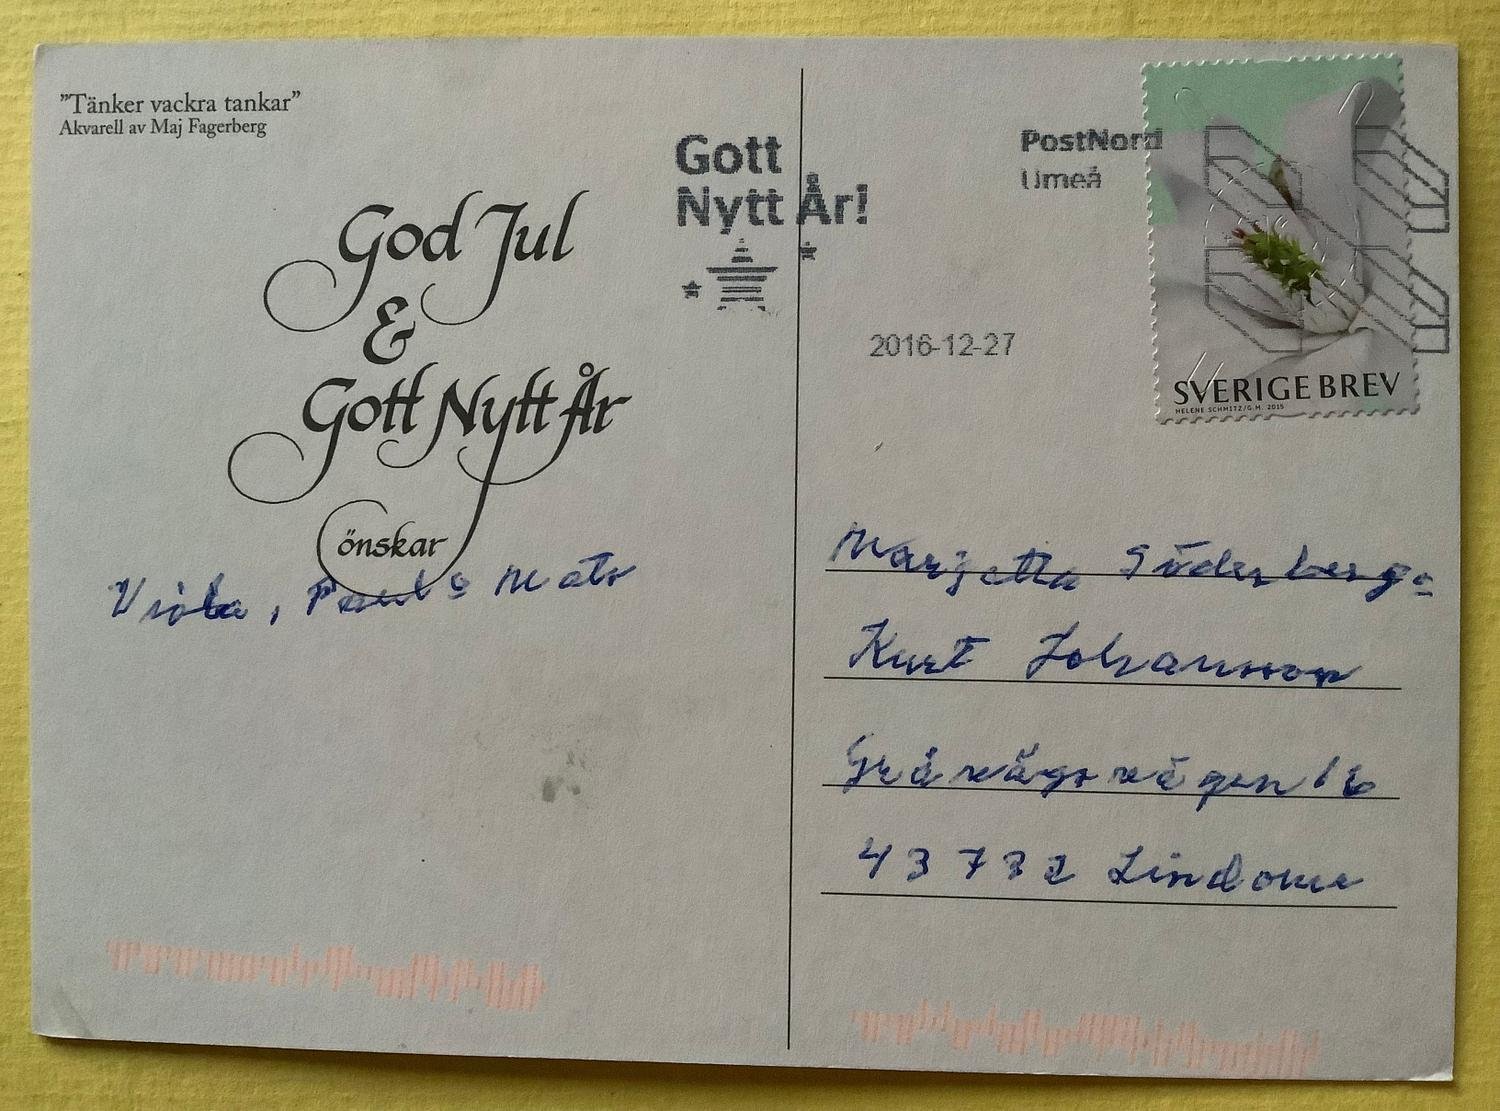 ”Tänker vackra tankar”
Akvarell av Maj Fagerberg
God Jul
&
Gott Nytt År
önskar
Viola, Paul o Mats
Gott
Nytt År!
PostNord
Umeå
2016-12-27
SVERIGE BREV
HELENE SCHMITZ/G.M. 2015
Söderberg o
Kurt Johansson
Gråvägsvägen 16
43732 Lindome